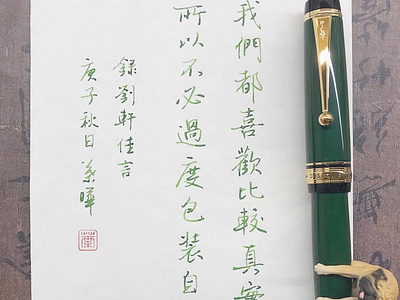 我們都喜歡比較真實
所以不必過度包裝自
錄劉軒佳言
庚子秋日葉曄